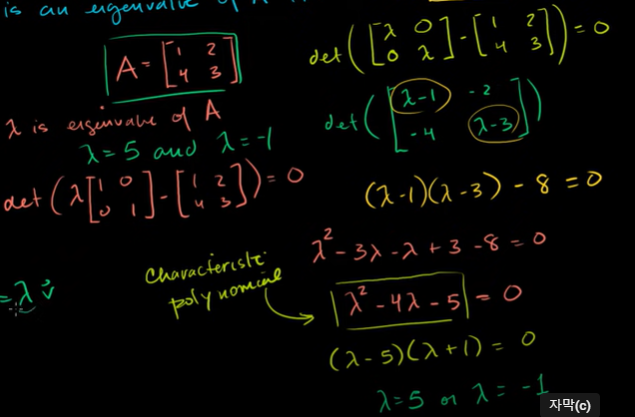 is an eigenvalue of
A = [1 2
4 3]
λ is eigenvalue of A
λ = 5 and λ = -1
det(λ[1 0
0 1] - [1 2
4 3]) = 0
= λ v⃗
det([λ 0
0 λ] - [1 2
4 3]) = 0
det([λ-1 -2
-4 λ-3])
(λ-1)(λ-3) - 8 = 0
λ² - 3λ - λ + 3 - 8 = 0
Characteristic
polynomial
λ² - 4λ - 5 = 0
(λ - 5)(λ + 1) = 0
λ = 5 or λ = -1
자막(c)